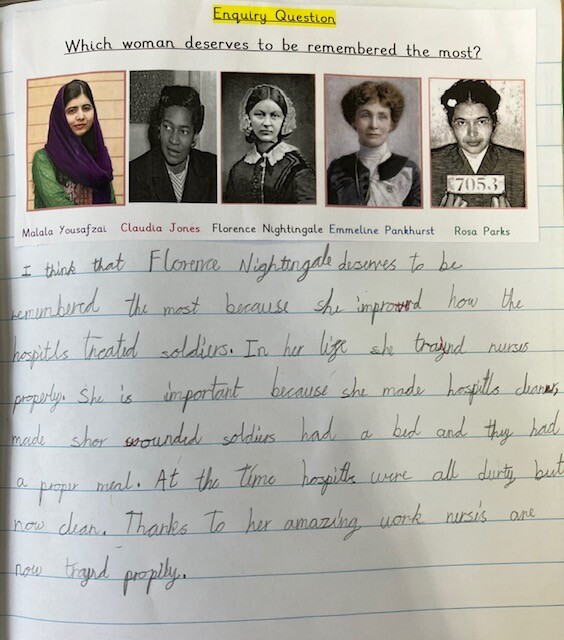 Enquiry Question
Which woman deserves to be remembered the most?
7053
Malala Yousafzai Claudia Jones Florence Nightingale Emmeline Pankhurst Rosa Parks
I think that Florence Nightingale deserves to be
remembered the most because she improved how the
hospitls treated soldiers. In her life she traynd nurses
properly. She is important because she made hospitls cleaner,
made shor wounded soldiers had a bed and they had
a proper meal. At the time hospitls were all durty but
now clean. Thanks to her amazing work nursis are
now traynd propily.